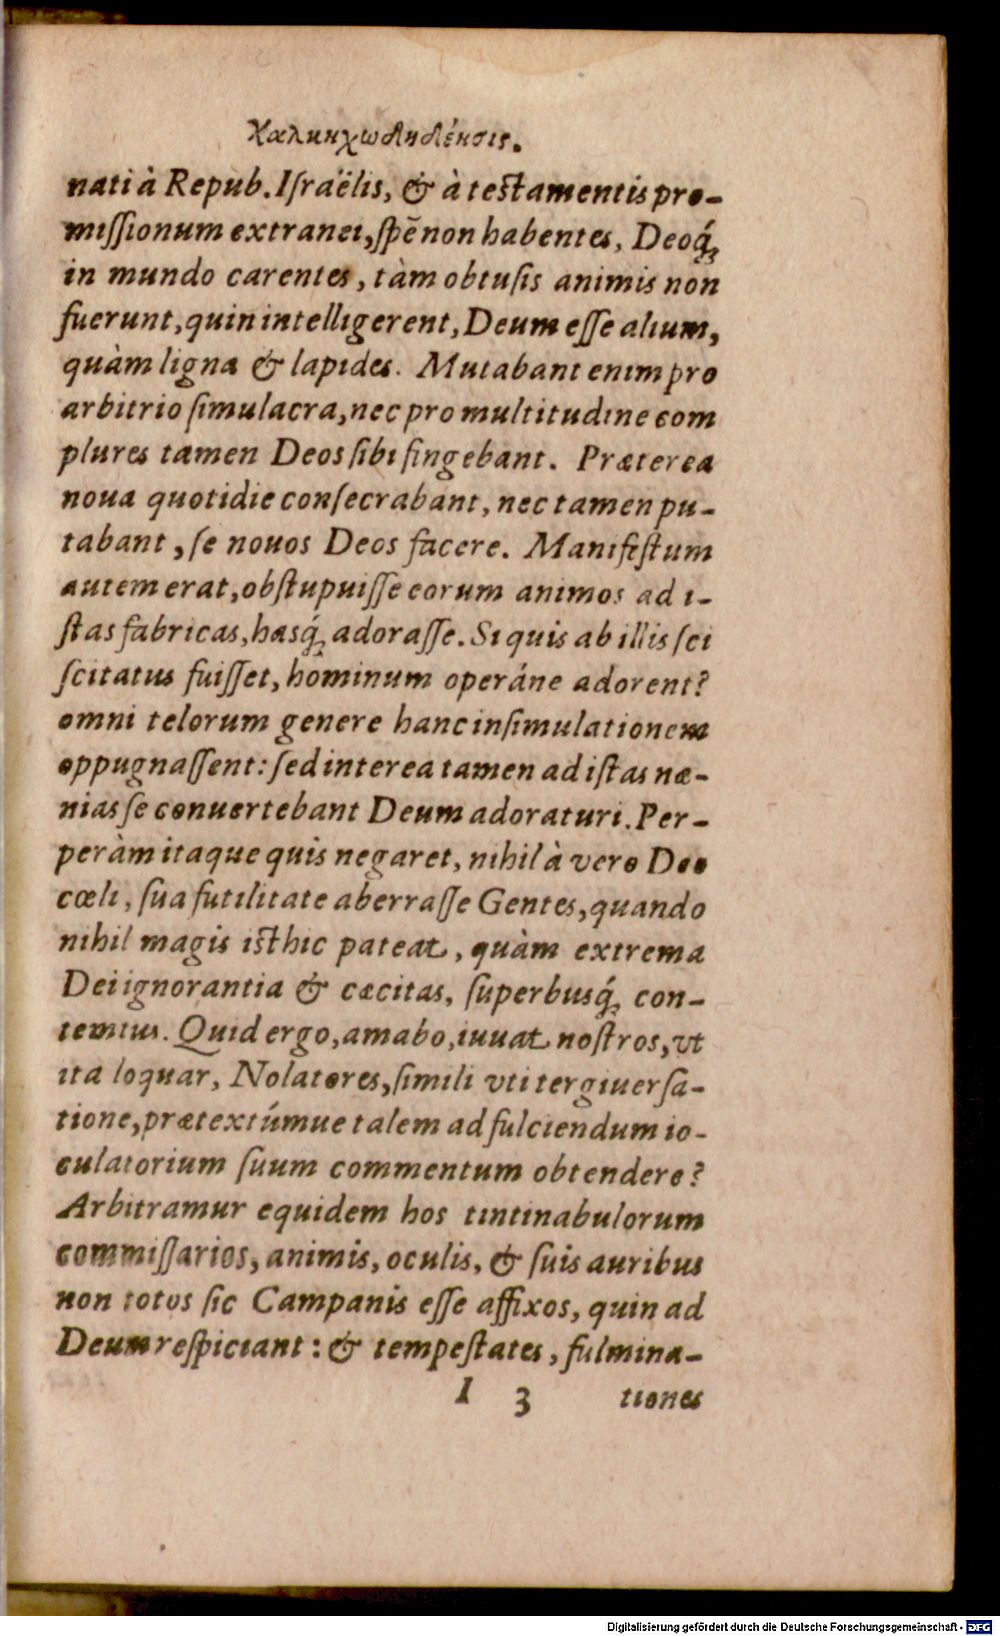 Χαλκηχωδηδένσις.
nati à Repub. Iſraëlis, & à teſtamentis pro-
miſſionum extranei, ſpē non habentes, Deoq́;
in mundo carentes, tàm obtuſis animis non
fuerunt, quin intelligerent, Deum eſſe alium,
quàm ligna & lapides. Mutabant enim pro
arbitrio ſimulacra, nec pro multitudine com
plures tamen Deos ſibi fingebant. Præterea
noua quotidie conſecrabant, nec tamen pu-
tabant, ſe nouos Deos facere. Manifeſtum
autem erat, obſtupuiſſe eorum animos ad i-
ſtas fabricas, hasq́; adoraſſe. Si quis ab illis ſci
ſcitatus fuiſſet, hominum operáne adorent?
omni telorum genere hanc inſimulationem
oppugnaſſent: ſed interea tamen ad iſtas næ-
nias ſe conuertebant Deum adoraturi. Per-
peràm itaque quis negaret, nihil à vero Deo
cœli, ſua futilitate aberraſſe Gentes, quando
nihil magis iſthic pateat, quàm extrema
Dei ignorantia & cæcitas, ſuperbusq́; con-
temtus. Quid ergo, amabo, iuuat noſtros, vt
ita loquar, Nolatores, ſimili vti tergiuerſa-
tione, prætextúmue talem ad fulciendum io-
culatorium ſuum commentum obtendere?
Arbitramur equidem hos tintinabulorum
commiſſarios, animis, oculis, & ſuis auribus
non totos ſic Campanis eſſe affixos, quin ad
Deum reſpiciant: & tempeſtates, fulmina-
I 3 tiones
Digitalisierung gefördert durch die Deutsche Forschungsgemeinschaft - DFG